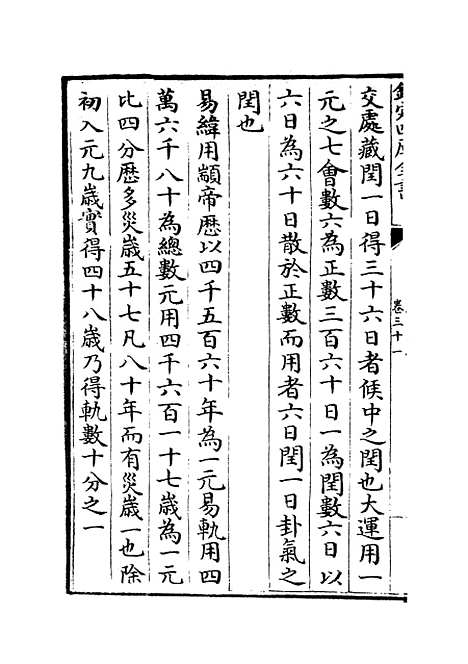 欽定四庫全書
卷三十一
交處藏閏一日得三十六日者候中之閏也大運用一
元之七會數六為正數三百六十日一為閏數六日以
六日為六十日散於正數而用者六日閏一日卦氣之
閏也
易緯用顓帝厯以四千五百六十年為一元易軌用四
萬六千八十為總數元用四千六百一十七歲為一元
比四分厯多災歲五十七凡八十年而有災歲一也除
初入元九歲實得四十八歲乃得軌數十分之一